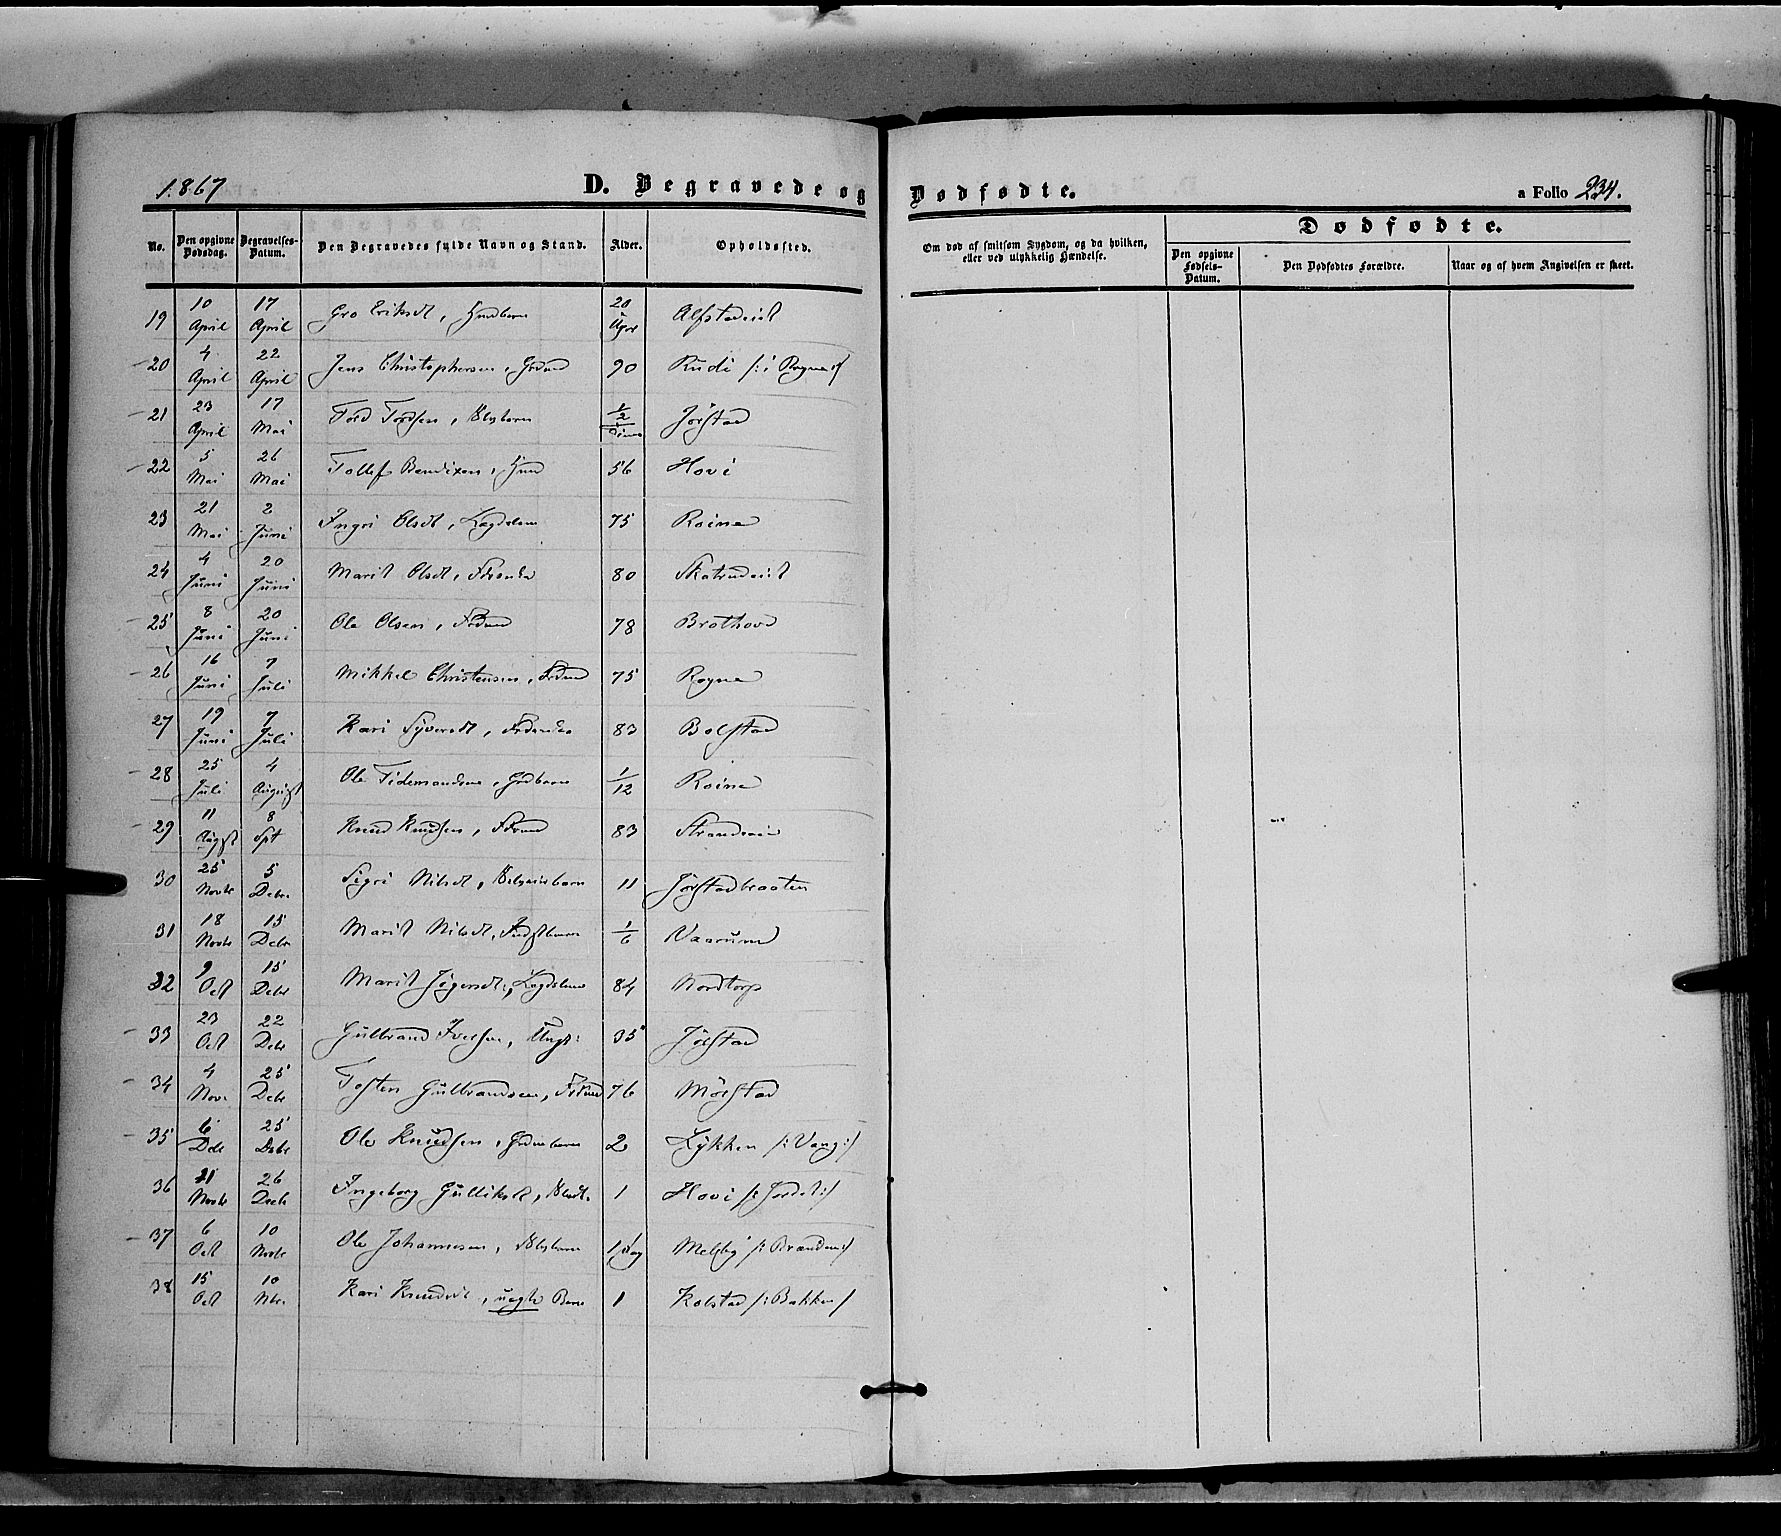 1867
D. Begravede og Dødfødte.
a Folio 234.
No.
Den opgivne Dødsdag.
Begravelses-Datum.
Den Begravedes fulde Navn og Stand.
Alder.
Opholdssted.
Om død af smitsom Sygdom, og da hvilken, eller ved ulykkelig Hændelse.
Dødfødte.
Den opgivne Fødsels-Datum.
Den Dødfødtes Forældre.
Naar og af hvem Angivelsen er skeet.
19 10 April 17 April Gro Eriksdt, 20 Uger Alfstadeid
20 4 April 22 April Jens Christophersen, 90 Rudi /: i Rogne :/
21 23 April 17 Mai Tord Tordsen, 1/2 Jørstad
22 5 Mai 26 Mai Tollef Bendixen, 56 Hovi
23 21 Mai 2 Juni Ingri Olsdt, Lægdslem 75 Roine
24 4 Juni 20 Juni Marit Olsdt, 80
25 8 Juni 20 Juni Ole Olsen, 78 Brathove
26 16 Juni 7 Juli Mikkel Christensen, 75 Rogne
27 19 Juni 7 Juli Kari Syversdt, 83 Bolstad
28 25 Juli 4 August Ole Tidemandsen, 1/12 Roine
29 11 Augst 8 Spt Knud Knudsen, 83
30 25 Novbr 5 Debr. Sigri Nilsdt, 11 Jørstadbraaten
31 18 Novbr 15 Debr Marit Nilsdt, 1/6 Vaarum
32 9 Oct 15 Debr Marit Lægdslem 84 Nordtorp
33 23 Oct 22 Debr Gulbrand Iversen, Ungk: 35 Jørstad
34 4 Nov. 25 Debr Tosten Gulbrandsen, 76 Mørstad
35 6 Debr 25 Debr Ole Knudsen, 2 Lykken /: Vang :/
36 21 Novbr 26 Decbr Ingeborg Gulliksdt, 1 Hovi /: Jordet :/
37 6 Oct 10 Novbr Ole Johannesen, 1 Dag Melby /: Brænden :/
38 15 Oct 10 Nbr. Kari Knudsdt, uægte Barn 1 Kolstad /: Bakken :/